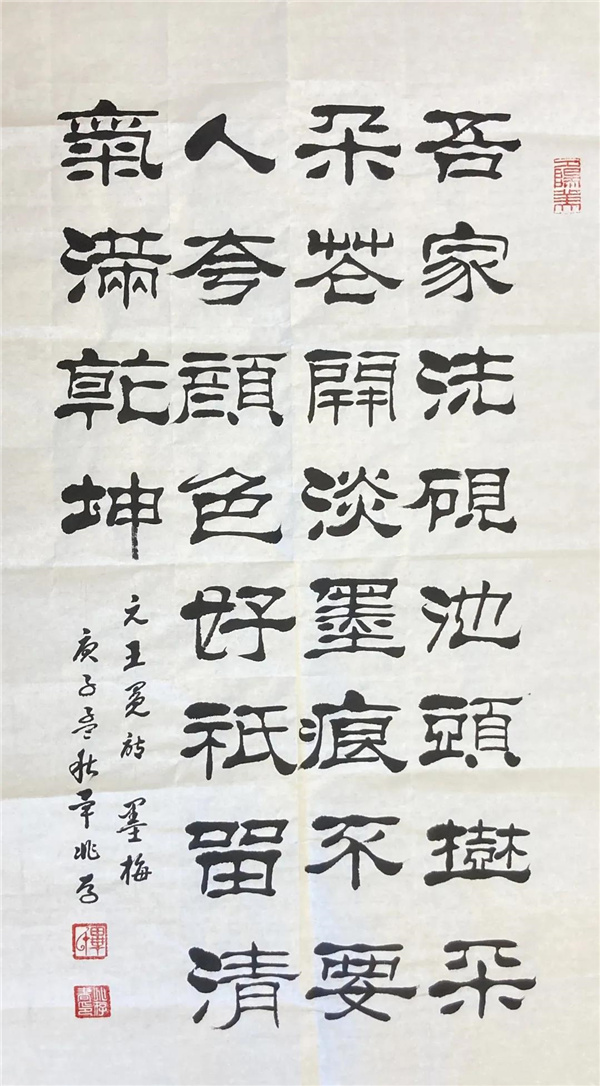 吾家洗硯池頭樹朵
朵花開淡墨痕不要
人夸顏色好祇留清
氣滿乾坤
元王冕詩 墨梅
庚子孟秋畢兆存